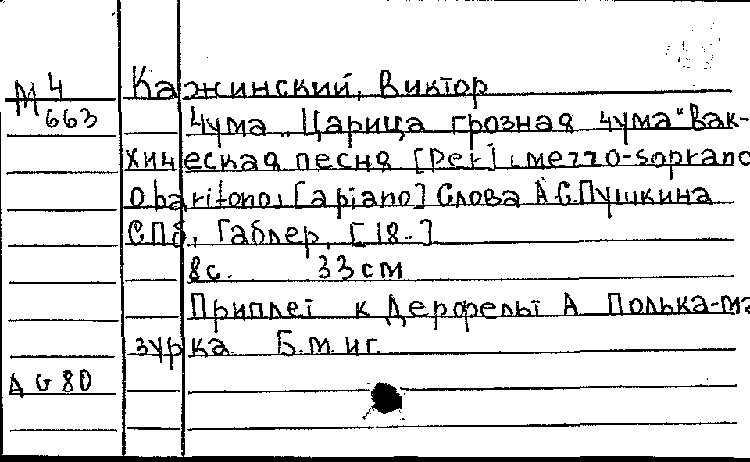 М 4
663
Кажинский, Виктор
Чума „Царица грозная чума" Вак-
хическая песня [Per] mezzo-soprano
o baritono, [a piano] Слова А.С.Пушкина
СПб, Габлер, [18-]
8с. 33см
Приплет к Дерфельт А Полька-ма
зурка Б.м. иг.
A G 80